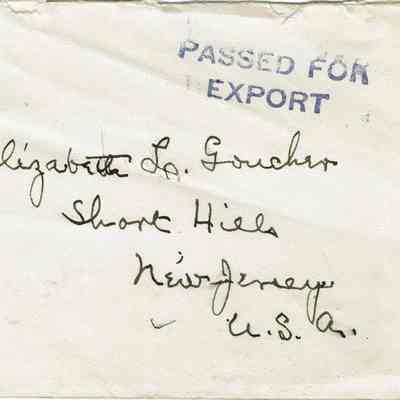 PASSED FOR
EXPORT
Elizabeth L. Goucher
Short Hills
New Jersey
U.S.A.